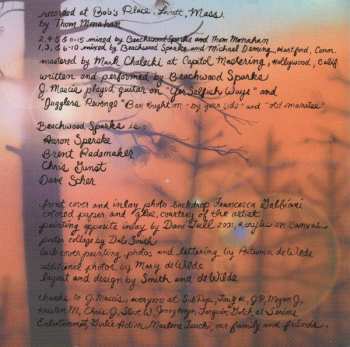 recorded at Bob's Place, Lovett, Mass
by Thom Monahan
2,4,5 & 11-15 mixed by Beachwood Sparks and Thom Monahan
1,3, & 6-10 mixed by Beachwood Sparks and Michael Deming, Hartford, Conn
mastered by Mark Chalecki at Capitol Mastering, Hollywood, Calif
written and performed by Beachwood Sparks
J. Mascis played guitar on "Yer Selfish Ways" and
"Jugglers Revenge"
Beachwood Sparks is:
Aaron Sperske
Brent Rademaker
Chris Gunst
Dave Scher
front cover and inlay photo backdrop Francesca Gabbiani
colored paper and glue, courtesy of the artist
painting opposite inlay by Dave Gull, 2001, acrylic on canvas
poster collage by Dale Smith
back cover painting, photos and lettering by Autumn deWilde
additional photos by Mary deWilde
layout and design by Smith and deWilde
thanks to J. Mascis, everyone at Sub Pop, J.P., Megan J.,
Kristen M, Chris J, Steve W,
Entertainment, our family and friends.